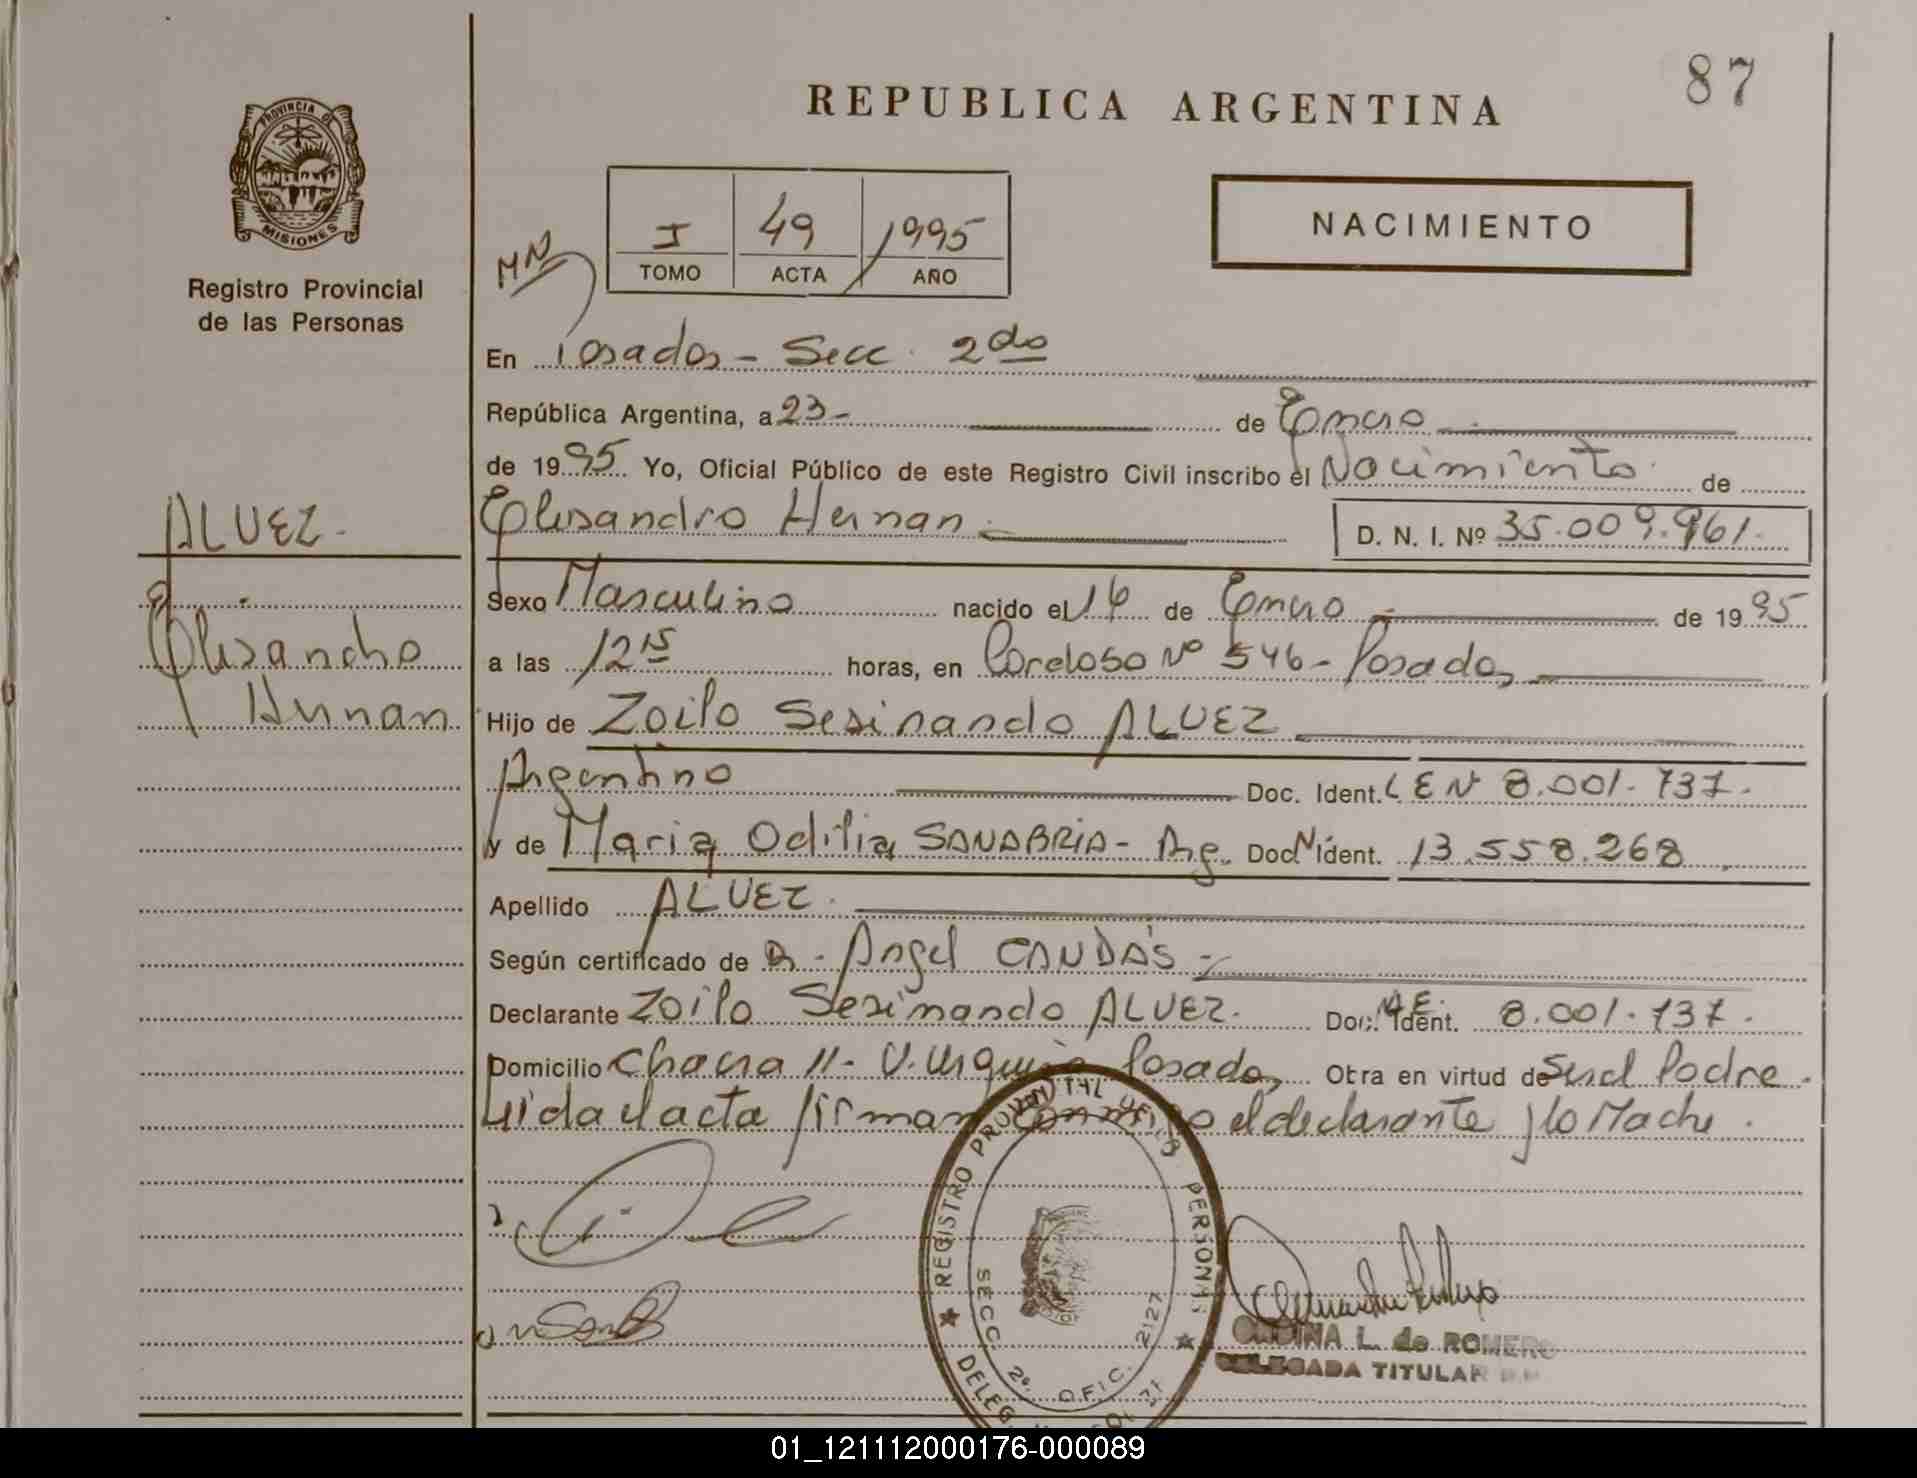 87
REPUBLICA ARGENTINA
PROVINCIA DE
MISIONES
Registro Provincial
de las Personas
NACIMIENTO
I 49 1995
TOMO ACTA AÑO
MN
En Posadas - Secc. 2da
República Argentina, a 23- de Enero
de 1995 Yo, Oficial Público de este Registro Civil inscribo el Nacimiento de
ALVEZ.
Elisandro Hernan D. N. I. Nº 35.009.961.
Sexo Masculino nacido el de Enero de 1995
Elisandro
a las 12 15 horas, en Nº 546- Posadas
Hernan
Hijo de Zoilo Sesinando ALVEZ
Argentino Doc. Ident. L E Nº 8.001.737.
y de Maria Odilia SANABRIA- Arg. Doc. Ident. 13.558.268
Apellido ALVEZ.
Según certificado de Dr. Angel CANDÁS -
Declarante Zoilo Sesinando ALVEZ. Doc. Ident. 8.001.737.
Domicilio Chacra 11- V. Urquiza Posadas Obra en virtud de Ser el Padre.
Leida el acta firman conmigo el declarante y la Madre.
REGISTRO PROVINCIAL DE LAS PERSONAS
SECC. 2ª. OFIC. 2127
DELEG.
L. de ROMERO
DELEGADA TITULAR
01_121112000176-000089